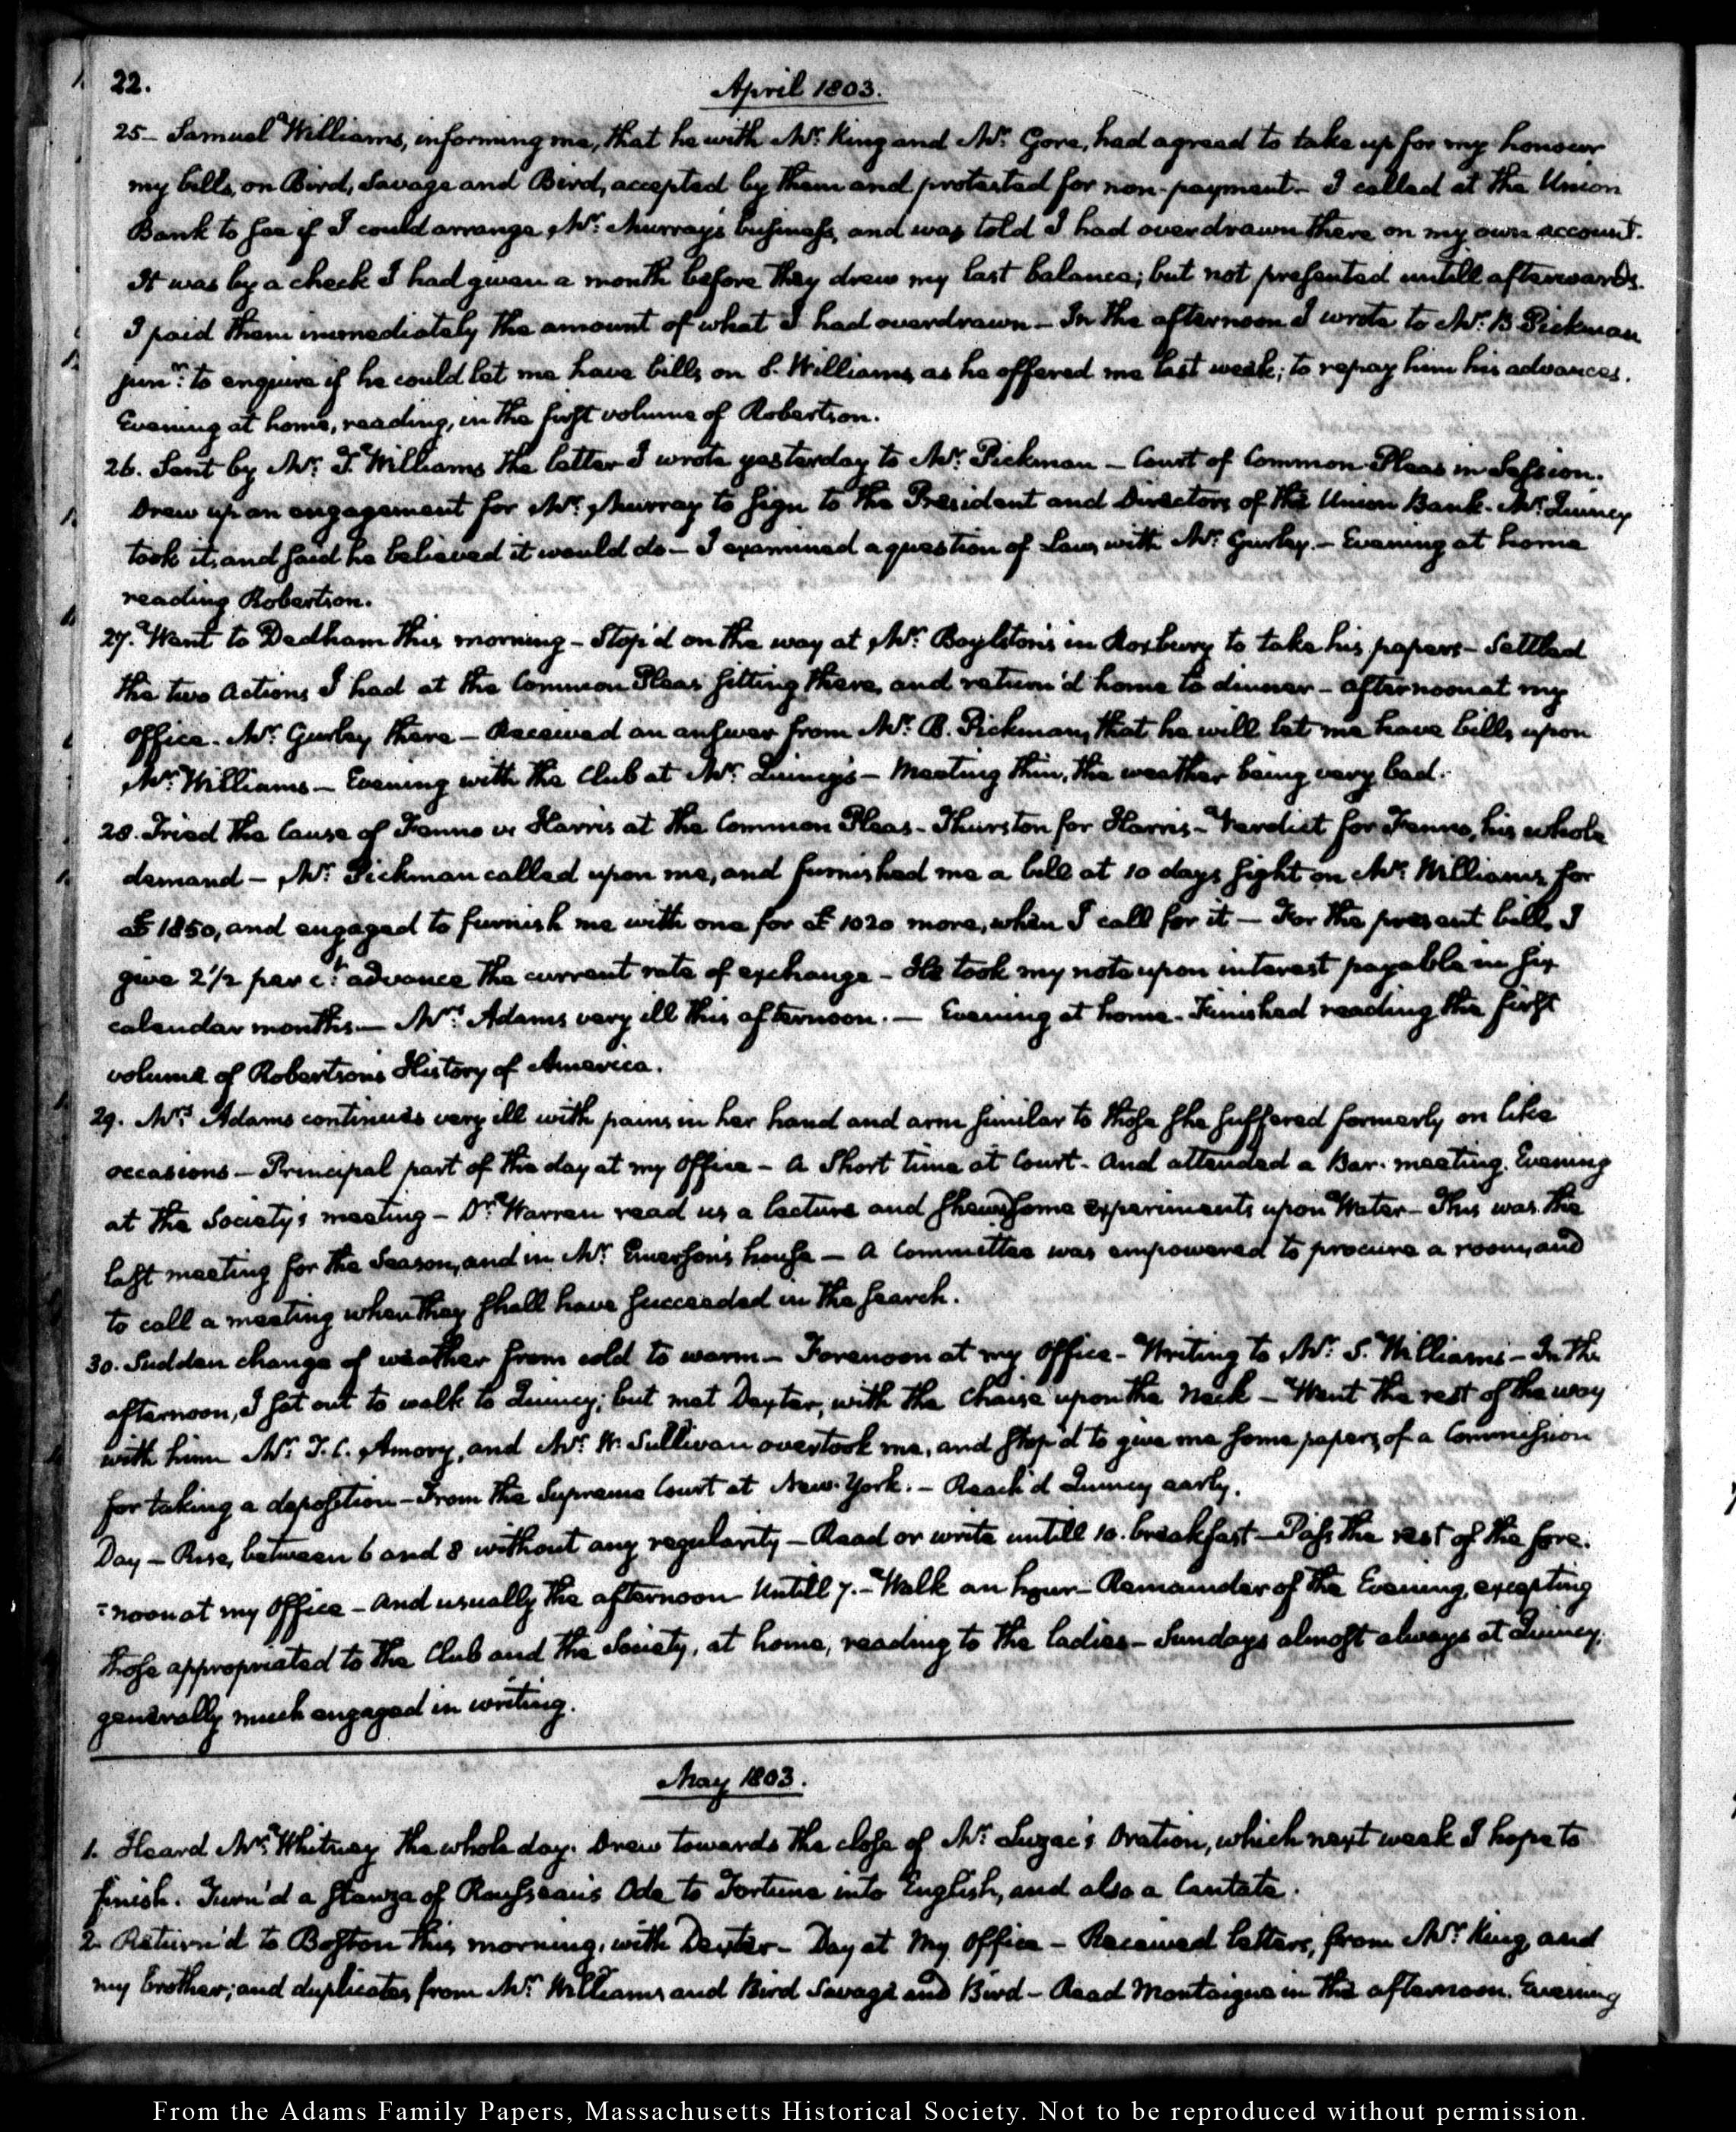 22.
April 1803.
25— Samuel Williams, informing me, that he with Mr. King and Mr. Gore, had agreed to take up for my honour
my bills, on Bird, Savage and Bird, accepted by them and protested for non-payment— I called at the Union
Bank to see if I could arrange Mr. Murray's business, and was told I had overdrawn there on my own account.
It was by a check I had given a month before they drew my last balance; but not presented untill afterwards.
I paid them immediately the amount of what I had overdrawn— In the afternoon I wrote to Mr. B. Pickman
junr. to enquire if he could let me have bills on S. Williams, as he offered me last week; to repay him his advances.
Evening at home, reading, in the first volume of Robertson.
26. Sent by Mr. T. Williams the letter I wrote yesterday to Mr. Pickman— Court of Common Pleas in Session.
Drew up an engagement for Mr. Murray to sign to the President and Directors of the Union Bank. Mr. Quincy
took it, and said he believed it would do— I examined a question of Law, with Mr. Gurley.— Evening at home
reading Robertson.
27. Went to Dedham this morning— Stop'd on the way at Mr. Boylston's in Roxbury to take his papers— Settled
the two Actions I had at the Common Pleas sitting there, and return'd home to dinner— afternoon at my
Office. Mr. Gurley there— Received an answer from Mr. B. Pickman, that he will let me have bills, upon
Mr. Williams— Evening with the Club at Mr. Quincy's— Meeting thin, the weather being very bad.
28. Tried the Cause of Fenno vs Harris at the Common Pleas— Thurston for Harris— Verdict for Fenno, his whole
demand— Mr. Pickman called upon me, and furnished me a bill at 10 days sight on Mr. Williams for
£ 1850, and engaged to furnish me with one for £ 1020 more, when I call for it— For the present bill, I
give 2 1/2 per ct. advance the current rate of exchange— He took my note upon interest payable in six
calendar months.— Mrs. Adams very ill this afternoon.— Evening at home. Finished reading the first
volume of Robertson's History of America.
29. Mrs. Adams continues very ill with pains in her hand and arm similar to those she suffered formerly on like
occasions— Principal part of the day at my Office— A short time at Court. And attended a Bar-meeting. Evening
at the Society's meeting— Dr. Warren read us a lecture and shew'd some experiments upon Water— This was the
last meeting for the Season, and in Mr. Emerson's house— A Committee was empowered to procure a room, and
to call a meeting when they shall have succeeded in the search.
30. Sudden change of weather from cold to warm— Forenoon at my Office— Writing to Mr. S. Williams— In the
afternoon, I sat out to walk to Quincy; but met Dexter, with the Chaise upon the Neck— Went the rest of the way
with him. Mr. T. C. Amory, and Mr. W. Sullivan overtook me, and stop'd to give me some papers, of a Commission
for taking a deposition— From the Supreme Court at New-York.— Reach'd Quincy early.
Day— Rise, between 6 and 8 without any regularity— Read or write untill 10. breakfast— Pass the rest of the fore-
=noon at my Office— And usually the afternoon Untill 7.— Walk an hour— Remainder of the Evening, excepting
those appropriated to the Club and the Society, at home, reading to the ladies— Sundays almost always at Quincy,
generally much engaged in writing.
May 1803.
1. Heard Mr. Whitney the whole day. Drew towards the close of Mr. Luzac's Oration, which next week I hope to
finish. Turn'd a stanza of Rousseau's Ode to Fortune into English, and also a Cantata.
2. Return'd to Boston this morning, with Dexter— Day at My Office— Received letters, from Mr. King, and
my brother; and duplicates, from Mr. Williams and Bird Savage and Bird— Read Montaigne in the afternoon. Evening
From the Adams Family Papers, Massachusetts Historical Society. Not to be reproduced without permission.